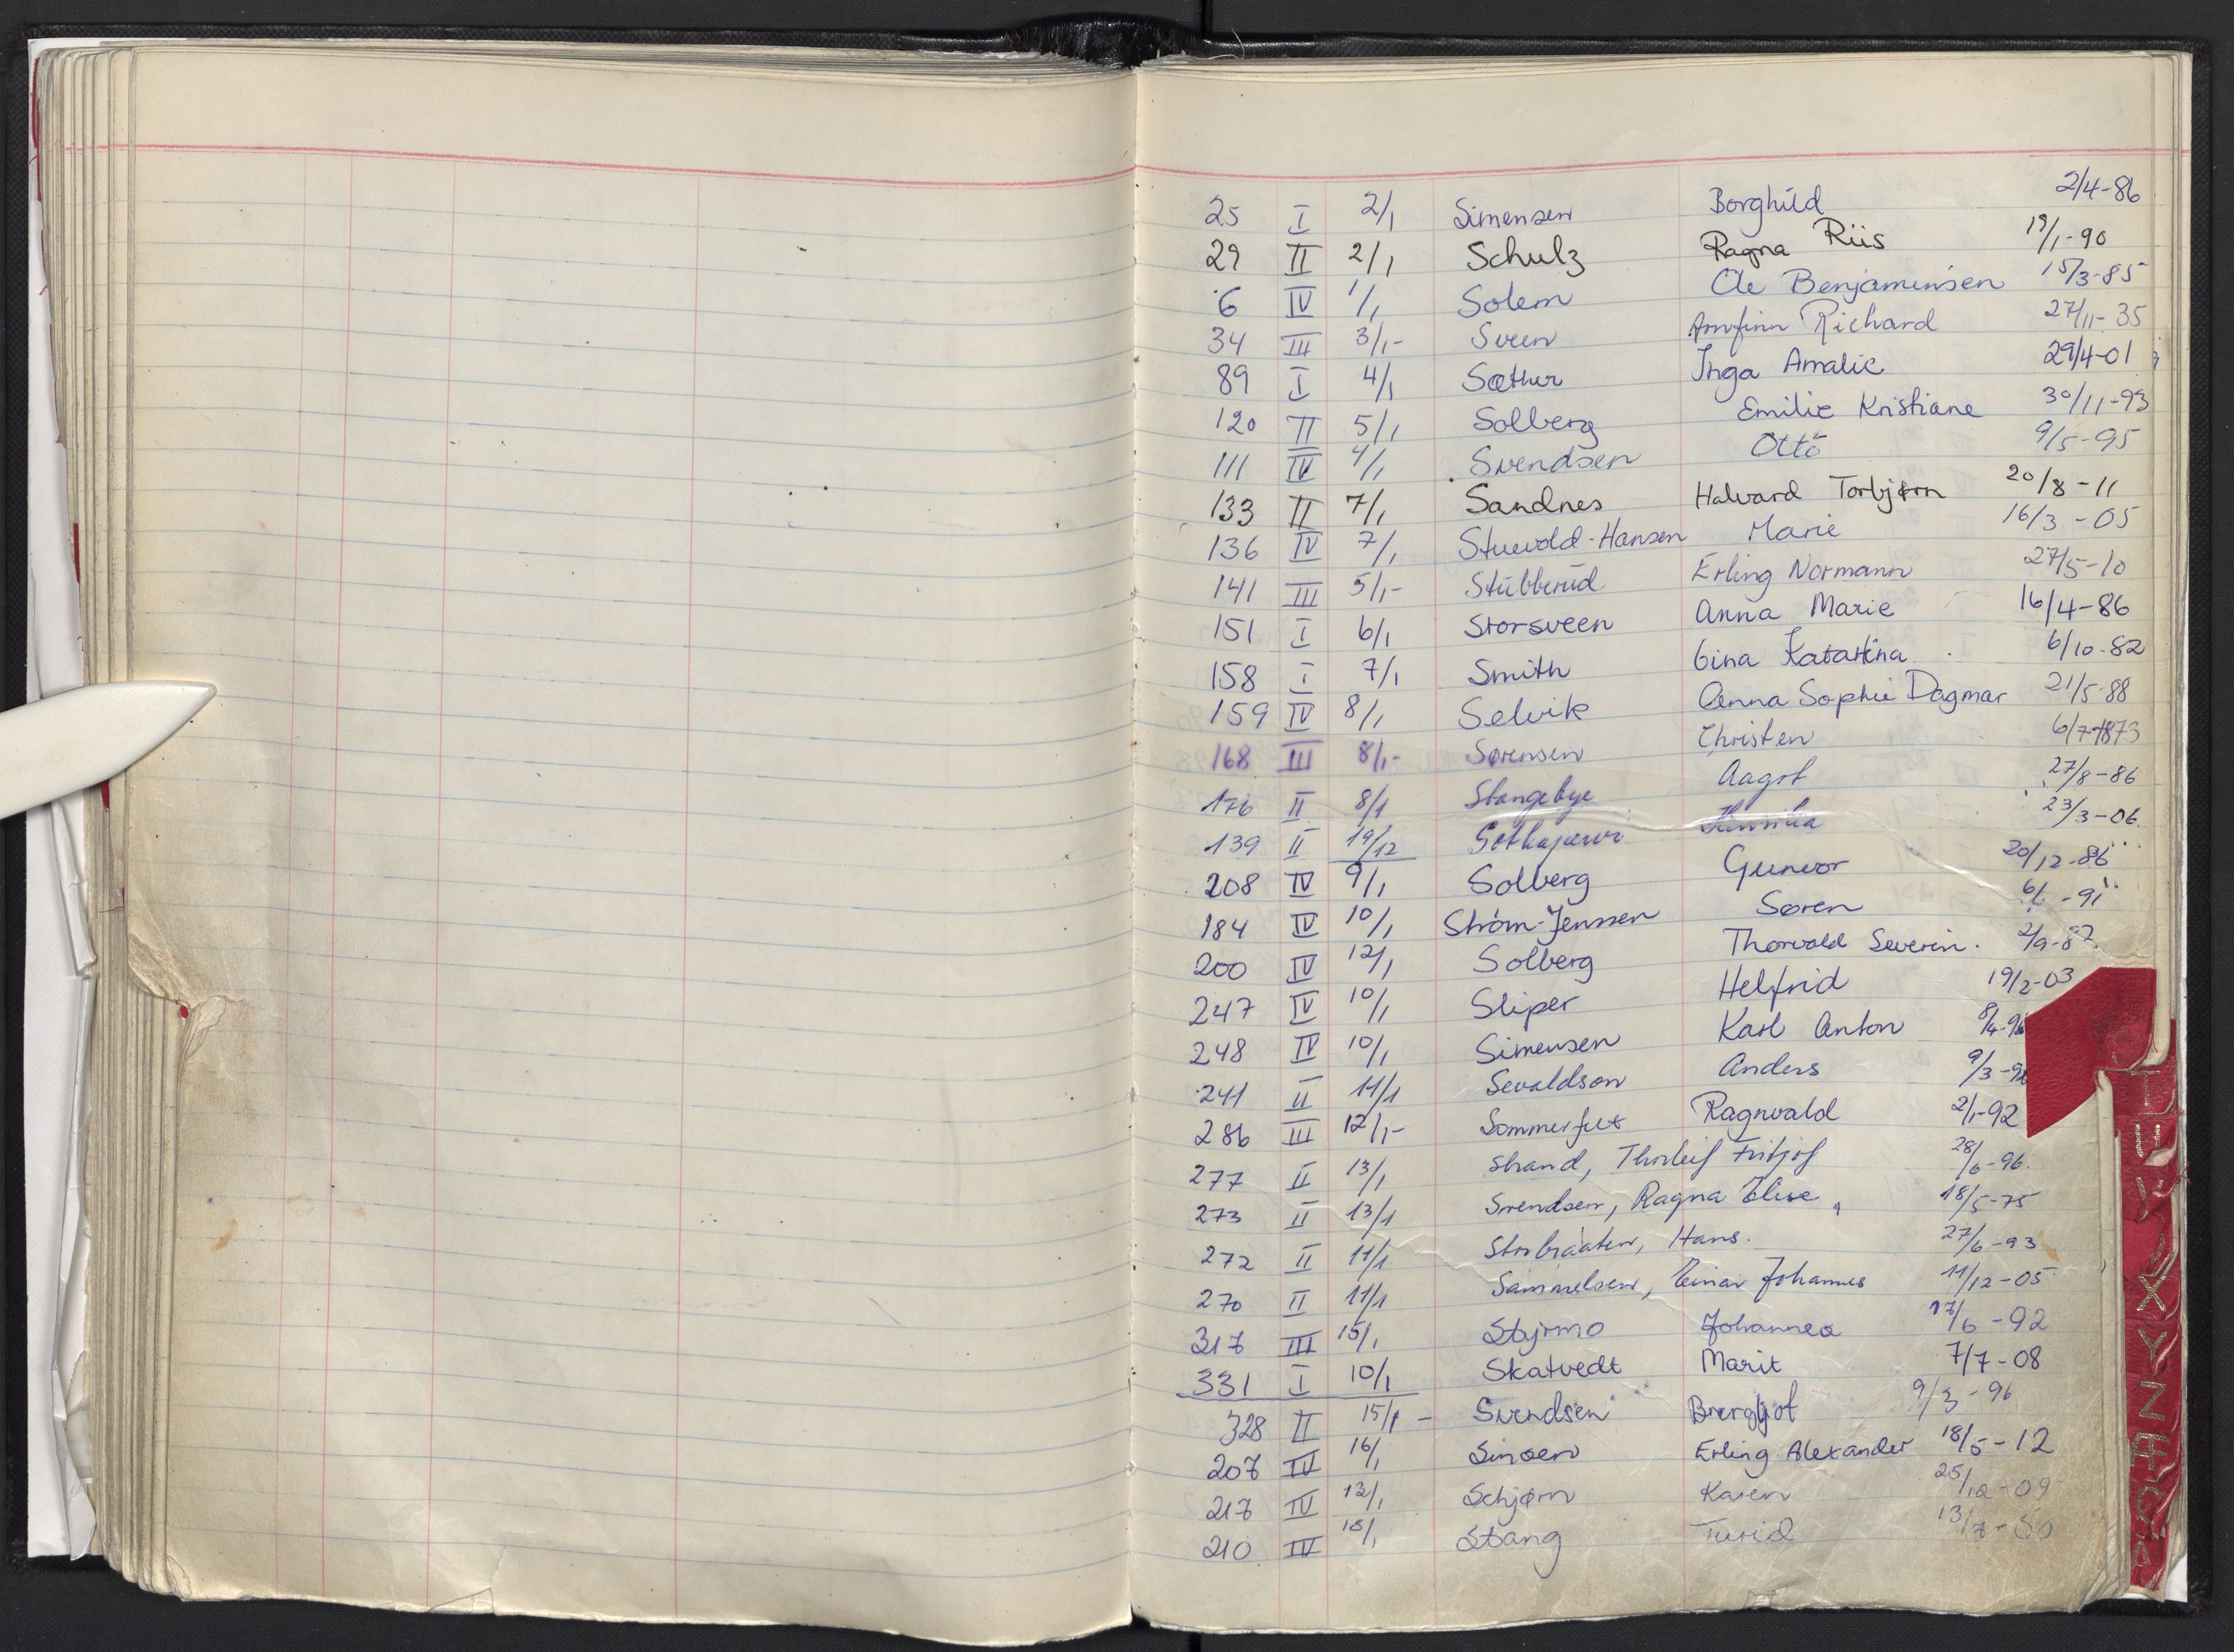 25 I 2/1 Simensen Borghild 2/4-86
29 II 2/1 Schulz Ragna Riis 19/1-90
6 IV 1/1 Solem Ole Benjaminsen 15/3-85
34 III 3/1- Sveen Arnfinn Richard 27/11-35
89 I 4/1 Sæther Inga Amalie 29/4-01
120 II 5/1 Solberg Emilie Kristiane 30/11-93
111 IV 4/1 Svendsen Otto 9/5-95
133 II 7/1 Sandnes Halvard Torbjørn 20/8-11
136 IV 7/1 Stuevold-Hansen Marie 16/3-05
141 III 5/1- Stubberud Erling Normann 27/5-10
151 I 6/1 Storsveen Anna Marie 16/4-86
158 I 7/1 Smith Gina Katarina 6/10-82
159 IV 8/1 Selvik Anna Sophie Dagmar 21/5-88
168 III 8/1- Sørensen Christen 6/7-1873
176 II 8/1 Stangebye Aagot 27/8-86
139 II 19/12 23/3-06
208 IV 9/1 Solberg Gunvor 20/12-86
184 IV 10/1 Strøm-Jenssen Søren 6/1-91
200 IV 12/1 Solberg Thorvald Severin. 2/9-87
247 IV 10/1 Sliper Helfrid 19/2-03
248 IV 10/1 Simensen Karl Anton 8/4-96
241 II 11/1 Sevaldson Anders 9/3-9
286 III 12/1- Sommerfelt Ragnvald 2/1-92
277 II 13/1 Strand, Thorleif Fritjof 28/6-96.
273 II 13/1 Svendsen, Ragna Elise 18/5-75
272 II 11/1 Storbråaten, Hans. 27/6-93
270 II 11/1 Sammelsen, Einar Johannes 11/12-05
317 III 15/1 Styrmo Johannes 17/6-92
331 I 10/1 Skatvedt Marit 7/7-08
328 II 15/1- Svendsen Bergljot 9/3-96
207 IV 16/1 Sinsen Erling Alexander 18/5-12
217 IV 13/1 Schjørn Karen 25/12-09
210 IV 15/1 Stang Turid 13/7-50
T
U
V
X
Y
Z
Æ
Ø